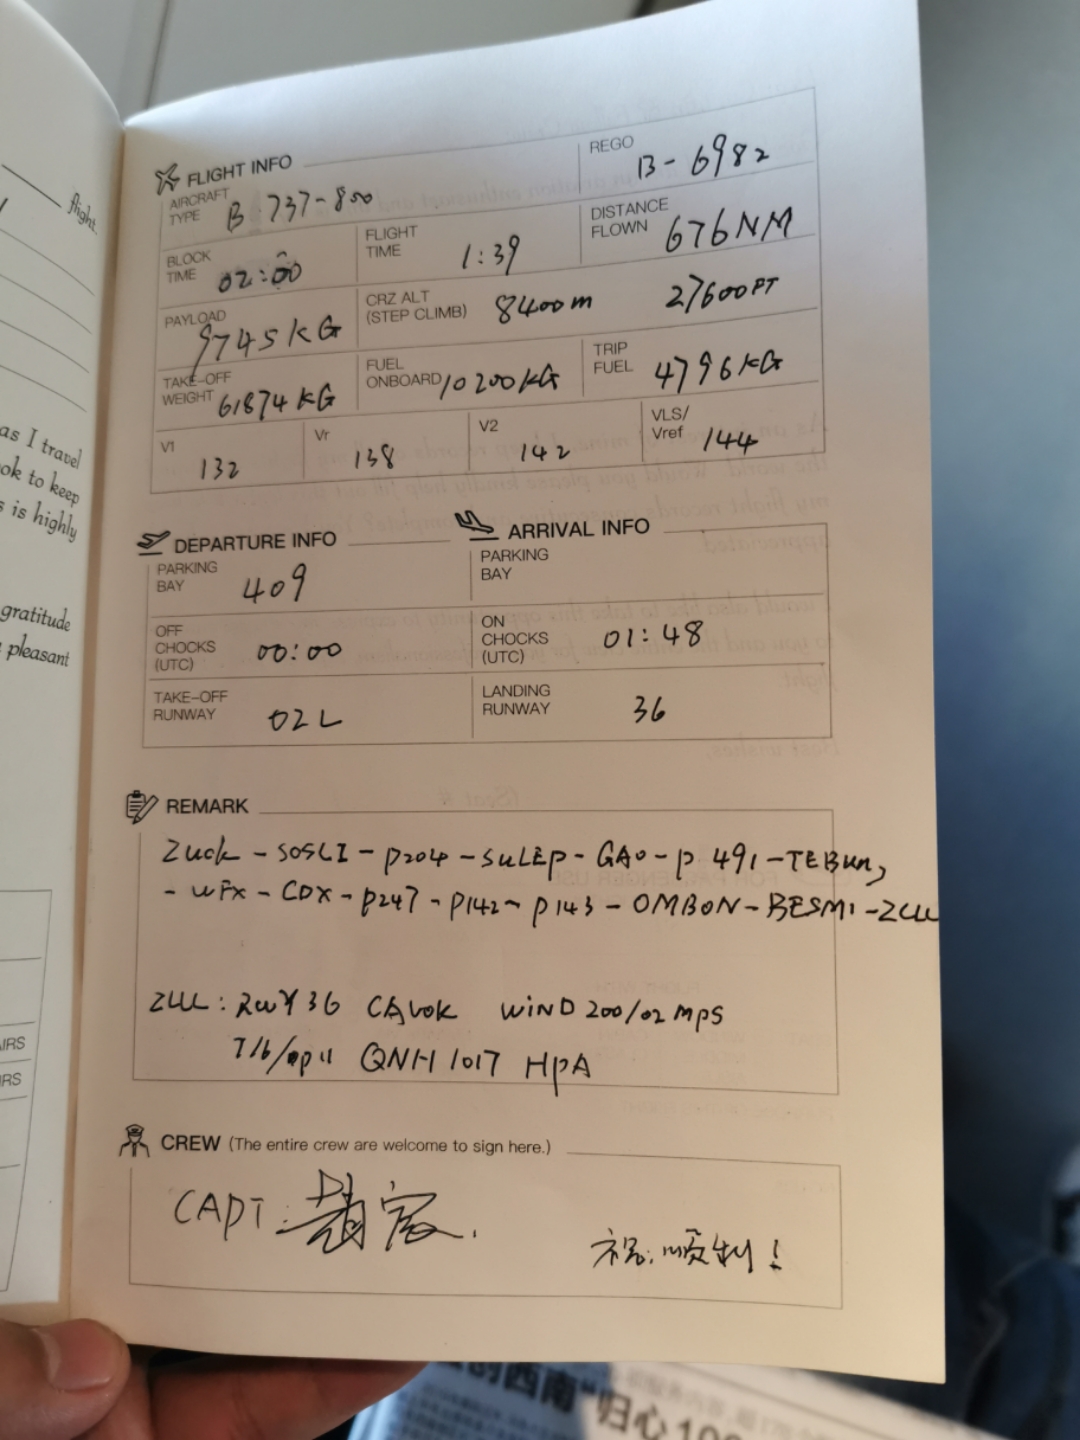 flight.
as I travel
ok to keep
s is highly
gratitude
pleasant
IRS
RS
FLIGHT INFO
AIRCRAFT TYPE B-737-800
REGO B-6982
BLOCK TIME 02:00
FLIGHT TIME 1:39
DISTANCE FLOWN 676NM
PAYLOAD 9745KG
CRZ ALT (STEP CLIMB) 8400m 27600FT
TAKE-OFF WEIGHT 61874KG
FUEL ONBOARD 10200KG
TRIP FUEL 4796KG
V1 132
Vr 138
V2 142
VLS/Vref 144
DEPARTURE INFO
PARKING BAY 409
OFF CHOCKS (UTC) 00:00
TAKE-OFF RUNWAY 02L
ARRIVAL INFO
PARKING BAY
ON CHOCKS (UTC) 01:48
LANDING RUNWAY 36
REMARK
ZUCK - SOSLI - P204 - SULEP - GAO - P 491 - TEBUN,
- WFX - CDX - P247 - P142 - P143 - OMBON - BESMI - ZLLL
ZLLL: RWY36 CAVOK WIND 200/02 MPS
QNH 1017 HPA
CREW (The entire crew are welcome to sign here.)
CAPT:
祝:顺利!
西南"归心10